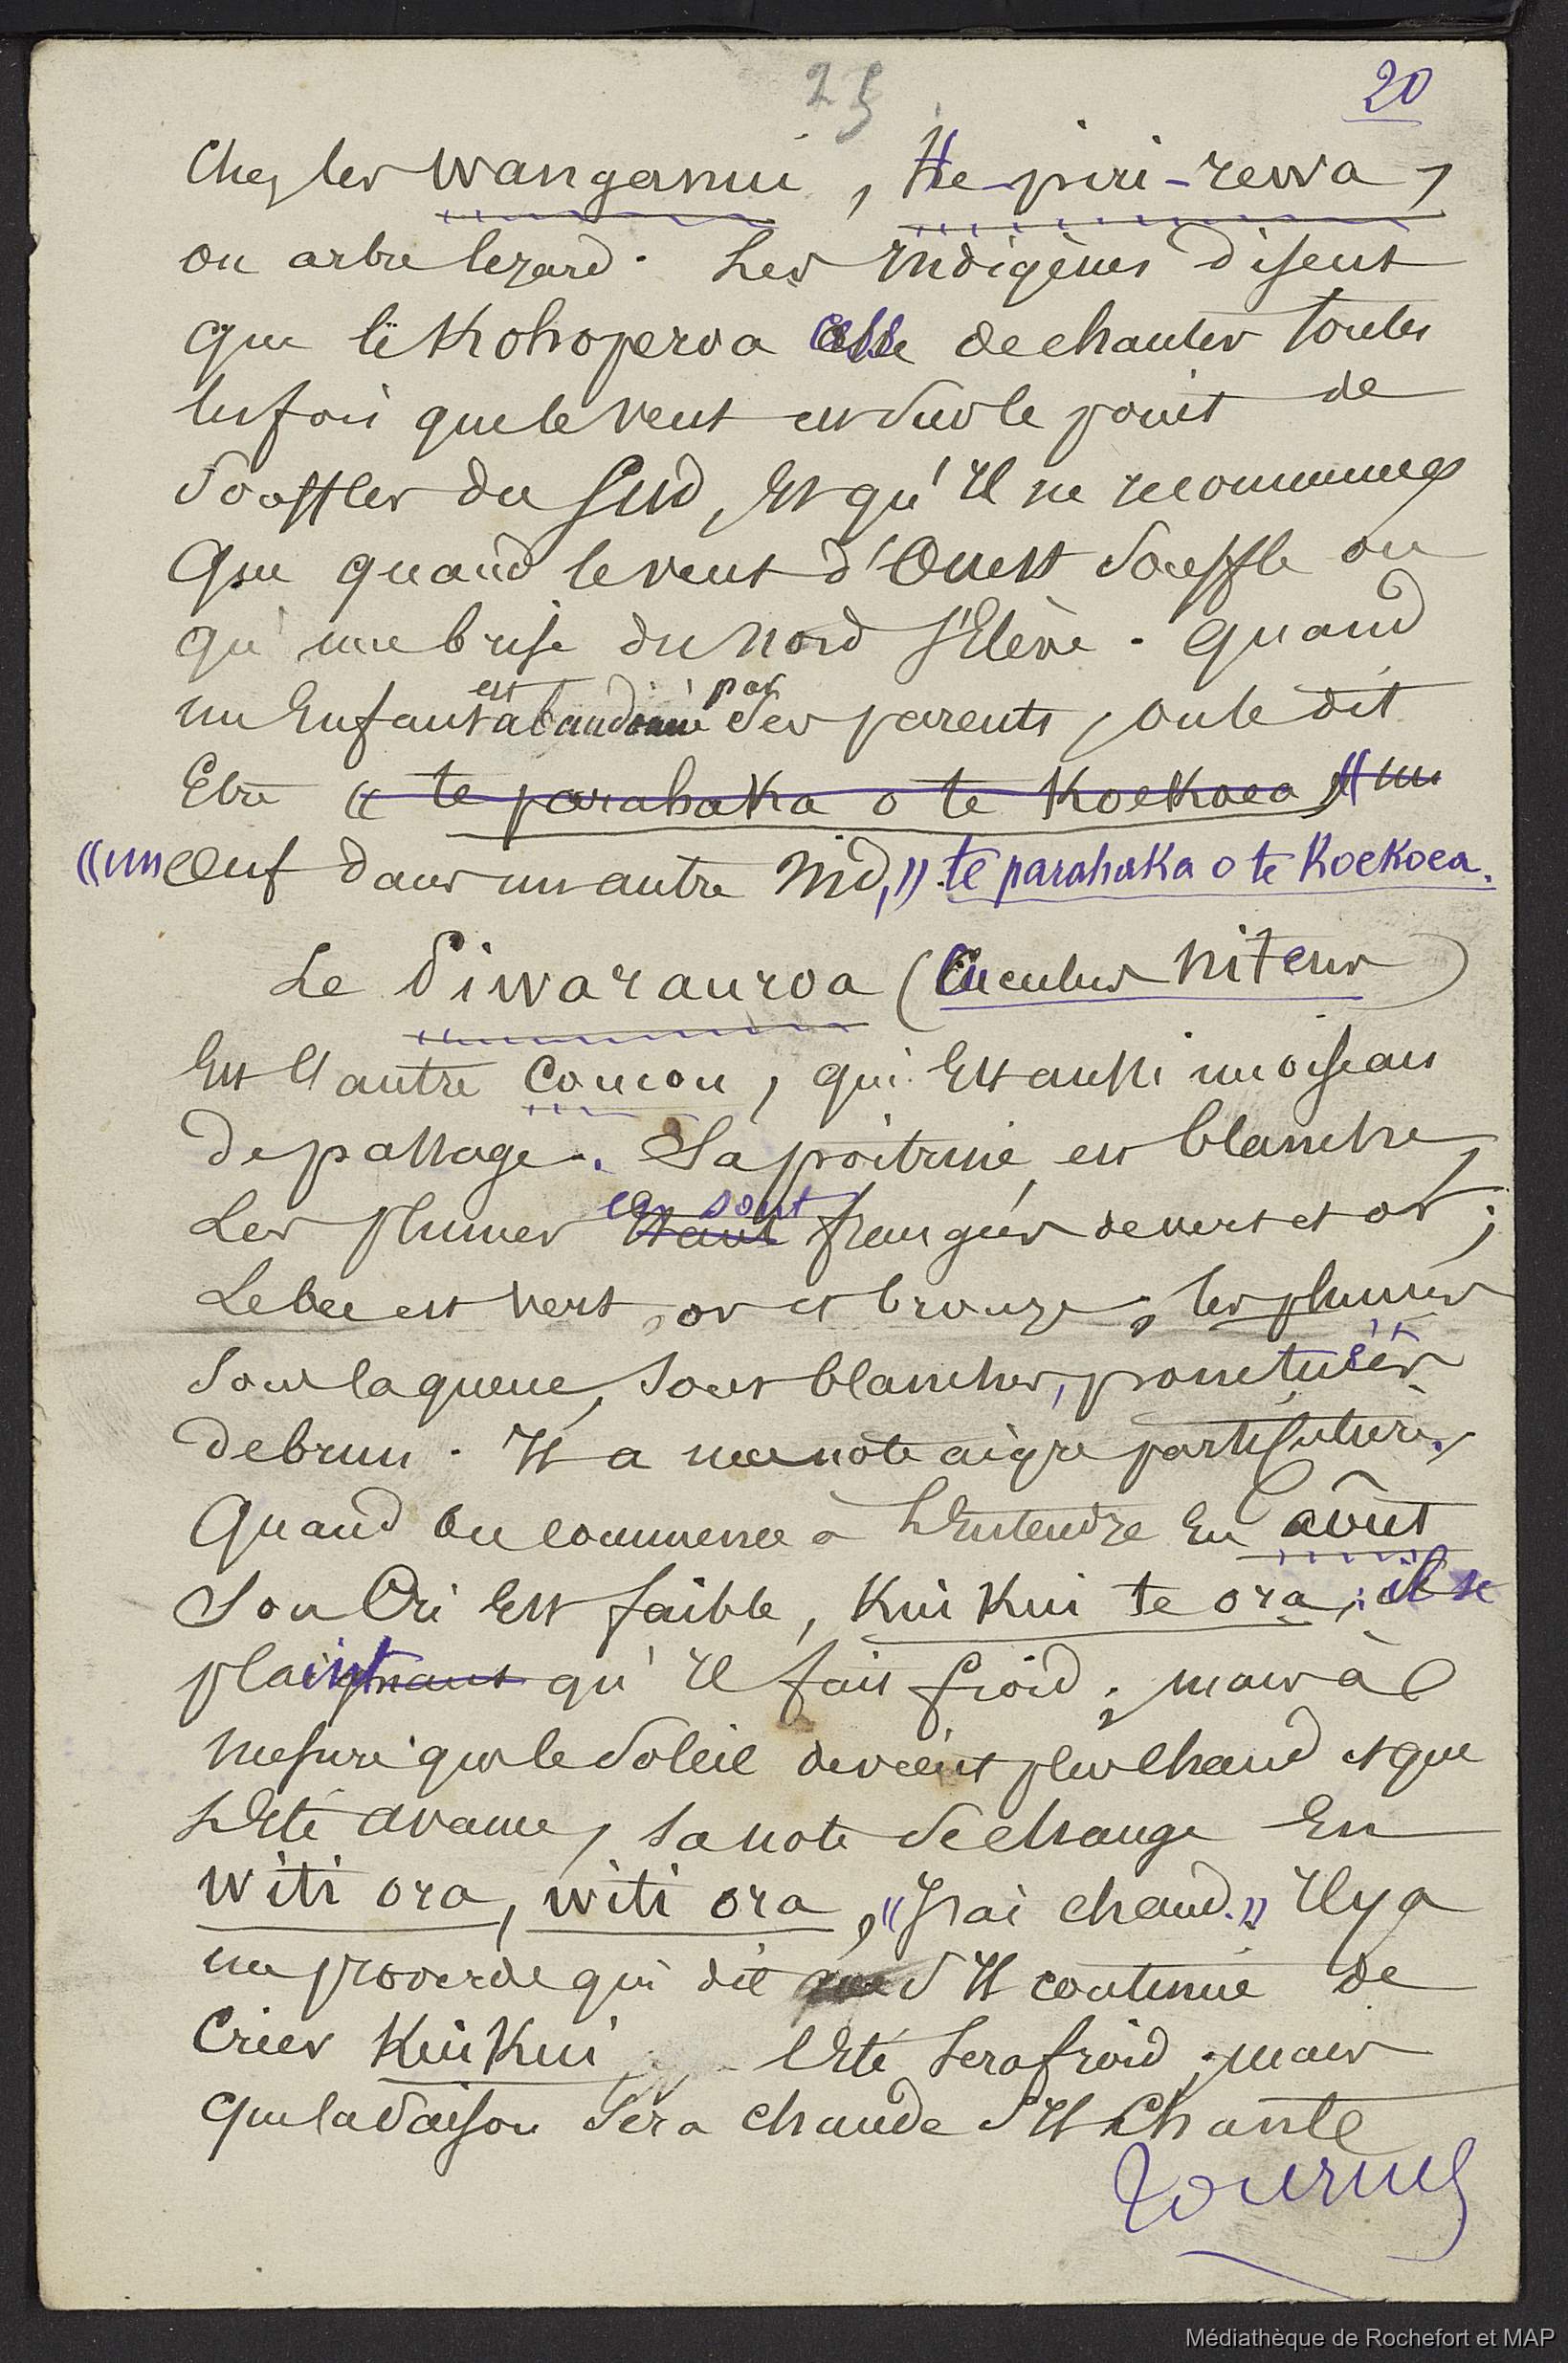 25
20
Chez les Wanganui, He piri-rewa,
ou arbre lezard. Les Indigènes disent
que le Kohoperoa cesse de chanter toutes
les fois que le vent est sur le point de
souffler du Sud, Et qu'Il ne recommence
Que quand le vent d'Ouest souffle ou
qu'une brise du Nord s'Elève. Quand
un Enfant est abandonné par ses parents, on le dit
Etre « te parahaka o te Koekoea » « un
« un œuf dans un autre Nid, » te parahaka o te Koekoea.
Le Piwarauroa (Cuculus Nitens)
Est l'autre Coucou, qui Est aussi un oiseau
de passage. Sa poitrine est blanche,
Les plumes Etant en sont frangées de vert et or;
Le bec est vert, or et bronze; les plumes
sous la queue, sont blanches, ponctuées
de brun. Il a une note aigre particulière.
Quand on commence à L'Entendre En août
son Cri Est faible, Kui Kui te ora; il se
plaint qu'Il fait froid; mais à
mesure que le soleil devient plus chaud et que
L'Eté avance, sa note se change En
witi ora, witi ora, « J'ai chaud. » Il y a
un proverbe qui dit que s'Il continue de
Crier Kui Kui l'Eté sera froid; mais
que la saison sera chaude s'Il Chante
Tournez
Médiathèque de Rochefort et MAP